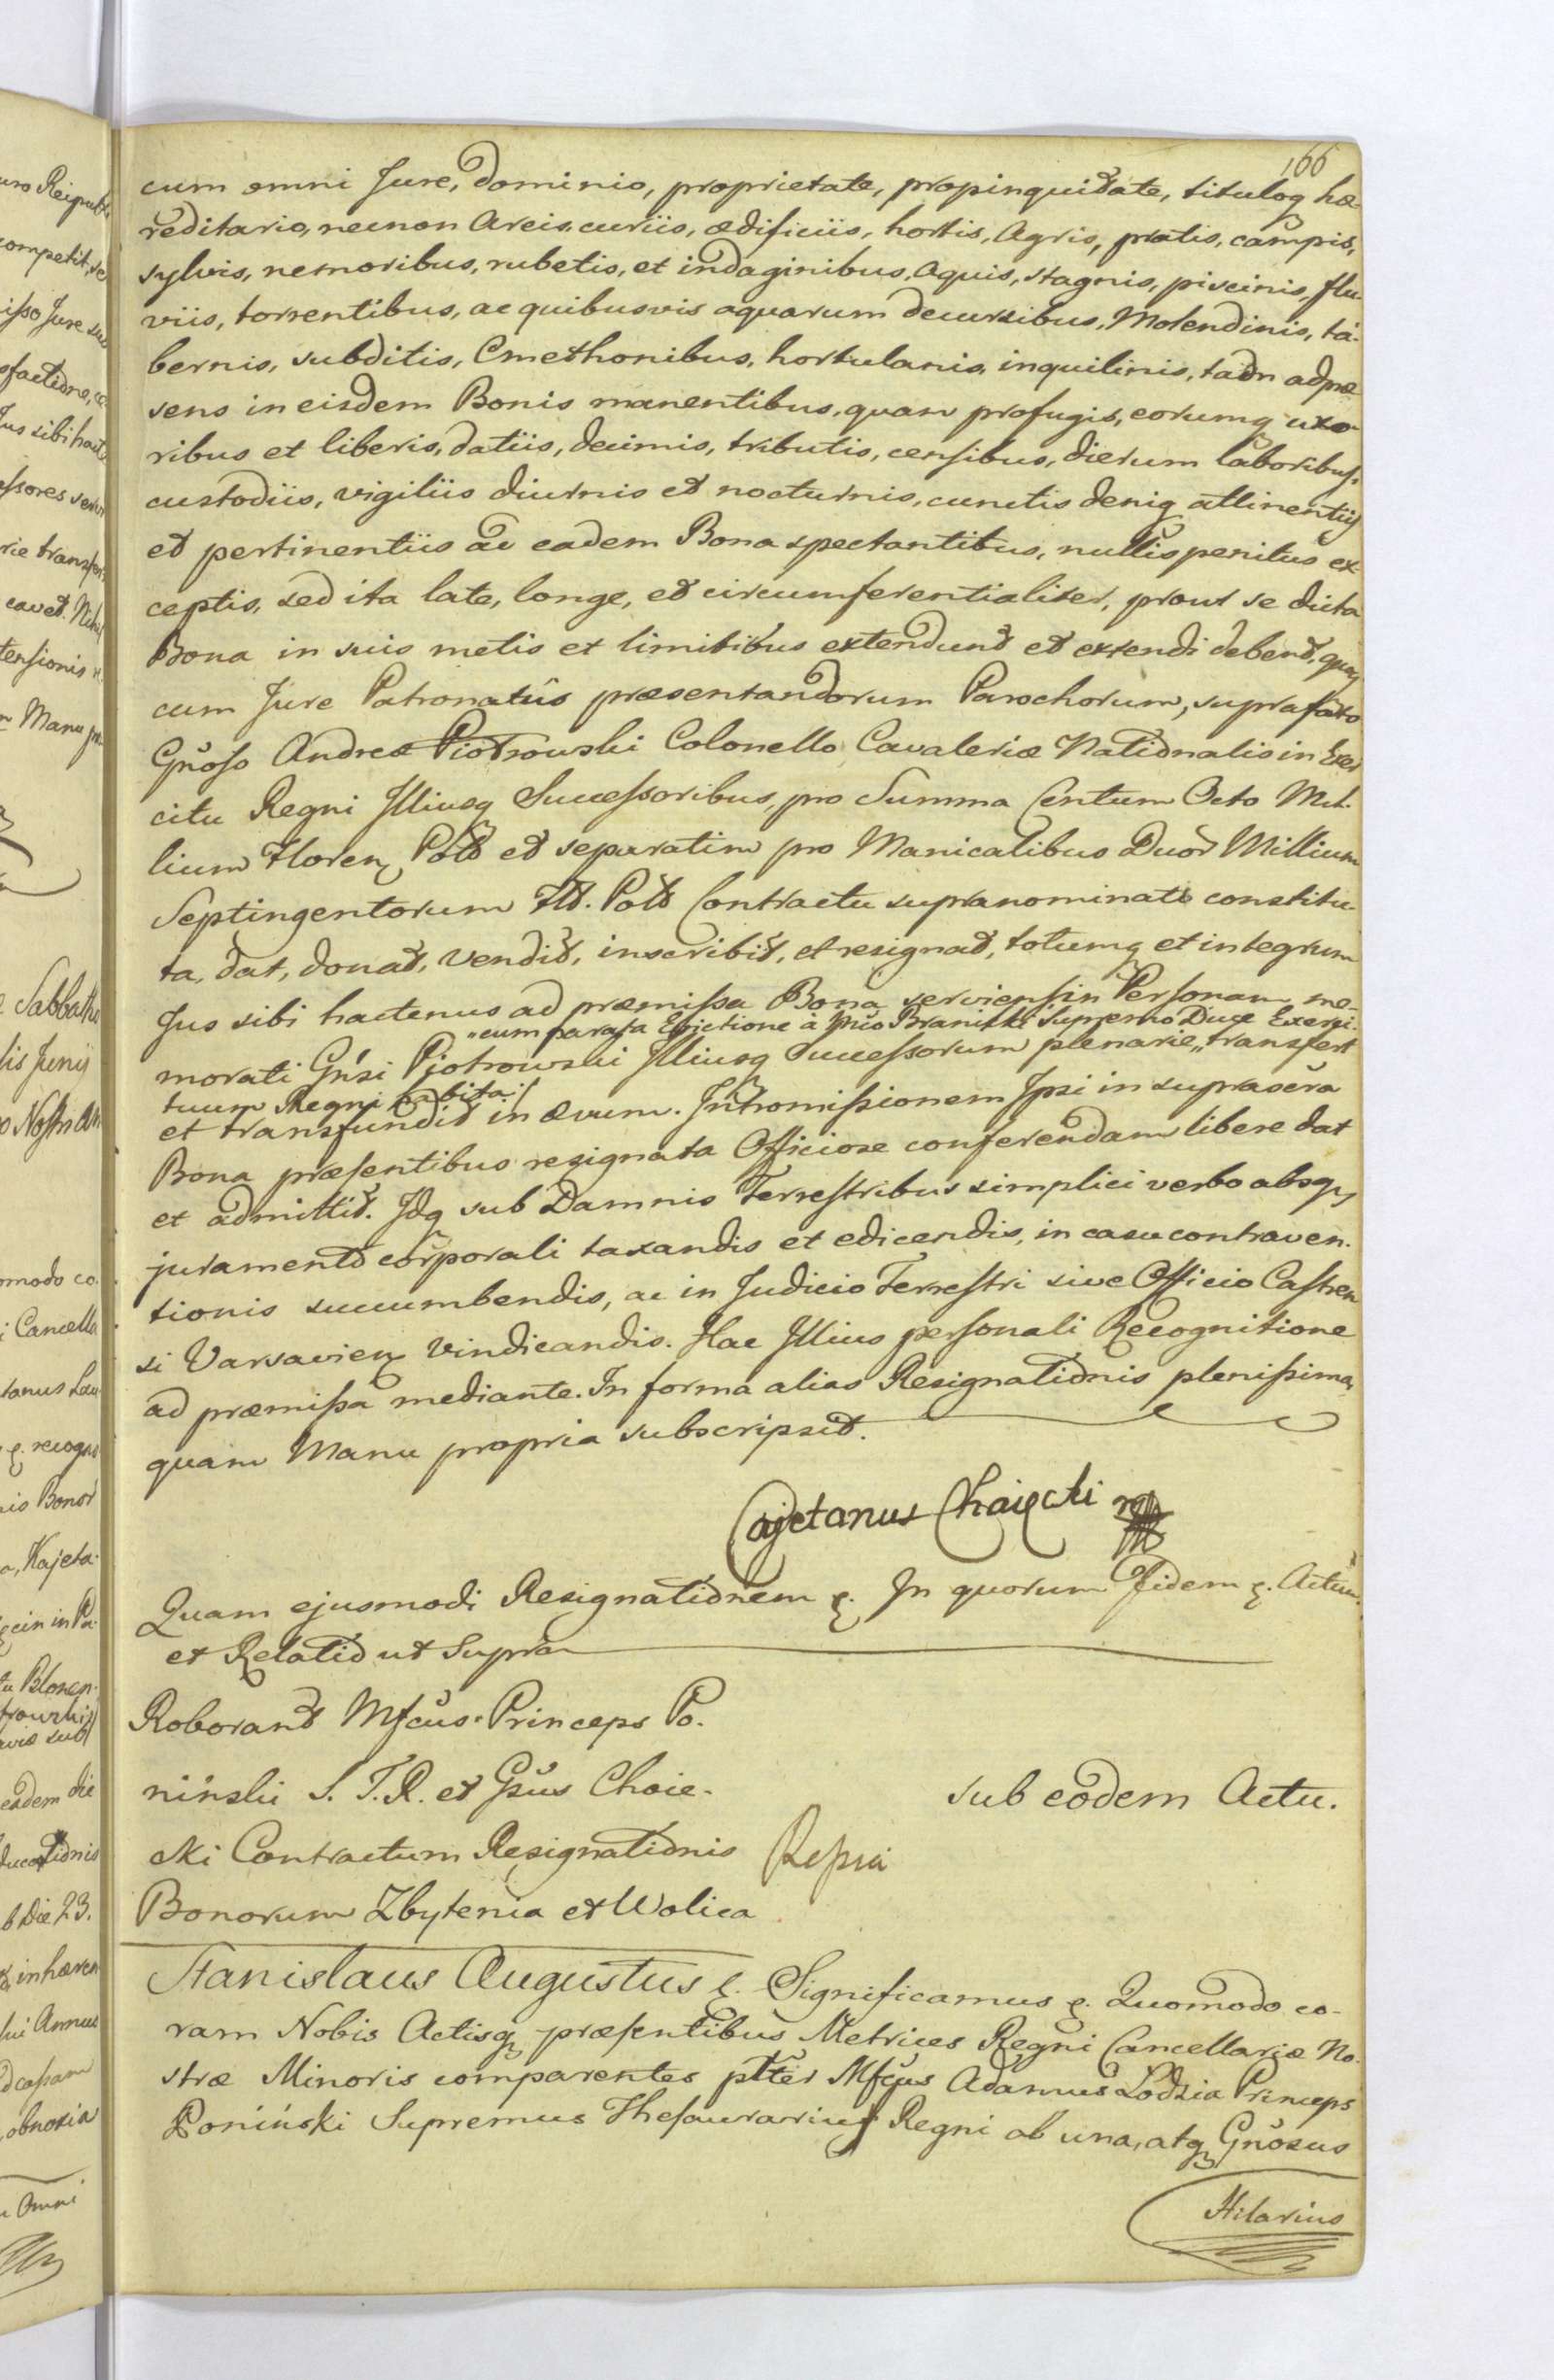 166
cum omni Jure, dominio, proprietate, propinquitate, tituloq hæ-
reditario, necnon Areis, curiis, ædificiis, hortis, Agris, pratis, campis,
sylvis, nemoribus, rubetis, et indaginibus, aquis, stagnis, piscinis, flu-
viis, torrentibus, ac quibusvis aquarum decursibus, Molendinis, ta-
bernis, subditis, Cmethonibus, hortulanis, inquilinis, tam ad præ
sens in eisdem Bonis manentibus, quam profugis, eorumq uxo-
ribus et liberis, datiis, decimis, tributis, censibus, dierum laboribus,
custodiis, vigiliis diurnis et nocturnis, cunctis deniq attinentiis
et pertinentiis ad eadem Bona spectantibus, nullis penitus ex-
ceptis, sed ita late, longe, et circumferentialiter, prout se dicta
Bona in suis metis et limitibus extendunt et extendi debent, quæ
cum Jure Patronatûs præsentandorum Parochorum, suprafato
Gnoso Andreæ Piotrowski Colonello Cavaleriæ Nationalis in Exer
citu Regni Illiusq Successoribus, pro Summa Centum Octo Mil-
lium Floren Pol et separatim pro Manicalibus Duor Millium
Septingentorum Fl. Pol Contractu supranominato constitu-
ta, dat, donat, vendit, inscribit, et resignat, totumq et integrum
Jus sibi hactenus ad præmissa Bona serviens in Personam me-
„cum parata Evictione à Mco Branitki Supremo Duce Exerci-
morati Gnsi Piotrowski Illiusq Successorum plenarie „transfert
tuum Regni habita
et transfundit in ævum. Intromissionem Ipsi in suprascra
Bona præsentibus resignata Officiose conferendam libere dat
et admittit. Idq sub Damnis Terrestribus simplici verbo absq
juramento corporali taxandis et edicendis, in casu contraven-
tionis succumbendis, ac in Judicio Terrestri sive Officio Castren
si Varsavien vindicandis. Hac Illius personali Recognitione
ad præmissa mediante. In forma alias Resignationis plenissima,
quam Manu propria subscripsit.
Cajetanus Choiecki
Quam ejusmodi Resignationem &. In quorum Fidem &. Actum
et Relatio ut Supra
Roborant Mfcus Princeps Po-
niński S. T. R. et Gsus Choie-
cki Contractum Resignationis
Bonorum Zbytenia et Wolica
sub eodem Actu.
Stanislaus Augustus &. Significamus &. Quomodo co-
ram Nobis Actisq præsentibus Metrices Regni Cancellariæ No-
stræ Minoris comparentes plter Mfcus Adamus Lodzia Princeps
Poniński Supremus Thesaurarius Regni ab una, atq Gnosus
Hilarius